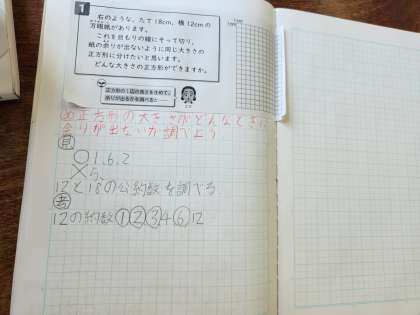 1
右のような、たて18cm、横12cmの
方眼紙があります。
これを目もりの線にそって切り、
紙の余りが出ないように同じ大きさの
正方形に分けたいと思います。
どんな大きさの正方形ができますか。
正方形の1辺の長さを決めて、
余りが出るかを調べると…
め 正方形の大きさがどんなときに
余りが出ないか調べよう
見
○1、6、2
×5、
12と18の公約数を調べる
考
12の約数①②③4⑥12